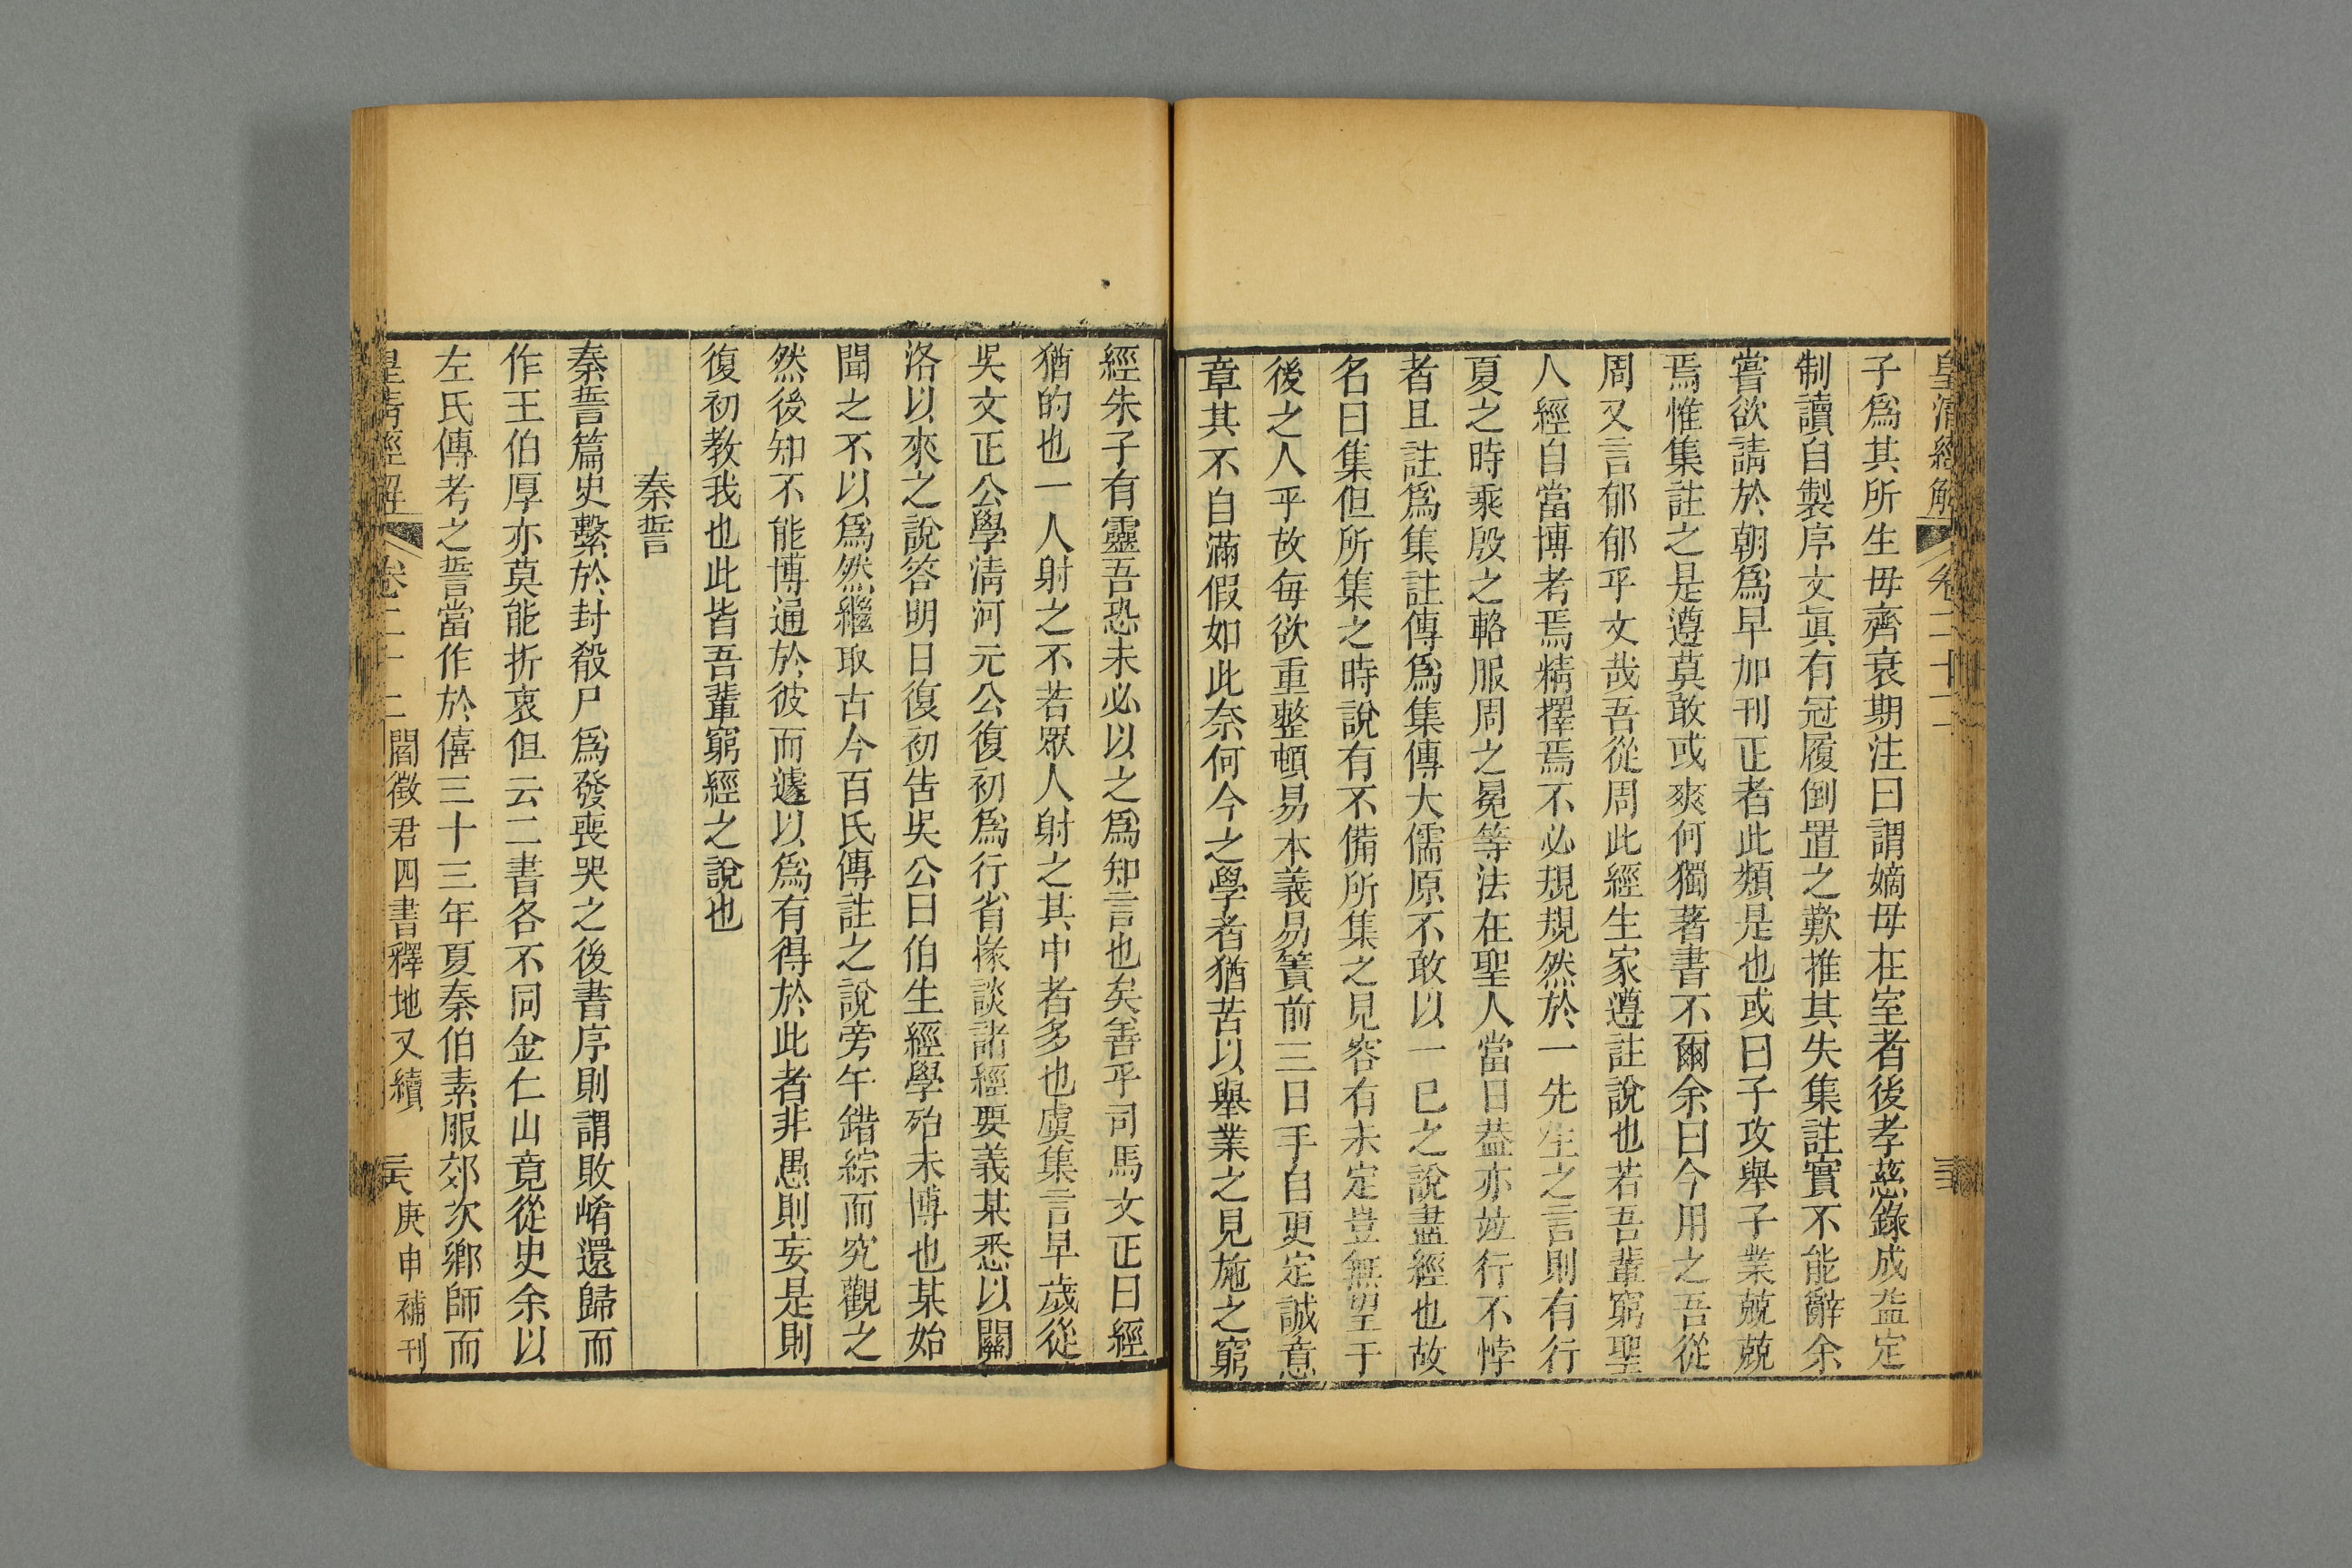 皇清經解 卷二十二
子爲其所生毋齊衰期注曰謂嫡毋在室者後孝慈錄成盖定
制讀自製序文眞有冠履倒置之歎推其失集註實不能辭余
嘗欲請於朝爲早加刊正者此類是也或曰子攻舉子業兢兢
焉惟集註之是遵莫敢或爽何獨著書不爾余曰今用之吾從
周又言郁郁乎文哉吾從周此經生家遵註說也若吾輩窮聖
人經自當博考焉精擇焉不必規規然於一先生之言則有行
夏之時乘殷之輅服周之冕等法在聖人當日葢亦竝行不悖
者且註爲集註傳爲集傳大儒原不敢以一巳之說盡經也故
名曰集但所集之時說有不備所集之見容有未定豈無望于
後之人乎故每欲重整頓易本義易簀前三日手自更定誠意
章其不自滿假如此奈何今之學者猶苦以舉業之見施之窮
經朱子有靈吾恐未必以之爲知言也矣善乎司馬文正曰經
猶的也一人射之不若眾人射之其中者多也虞集言早歲從
吳文正公學淸河元公復初爲行省掾談諸經要義某悉以關
洛以來之說答明日復初告吳公曰伯生經學殆未博也某始
聞之不以爲然繼取古今百氏傳註之說旁午錯綜而究觀之
然後知不能博通於彼而遽以爲有得於此者非愚則妄是則
復初教我也此皆吾輩窮經之說也
秦誓
秦誓篇史繫於封殽尸爲發喪哭之後書序則謂敗崤還歸而
作王伯厚亦莫能折衷但云二書各不同金仁山竟從史余以
左氏傳考之誓當作於僖三十三年夏秦伯素服郊次鄉師而
皇清經解 卷二十二 閻徵君四書釋地又續 庚申補刊